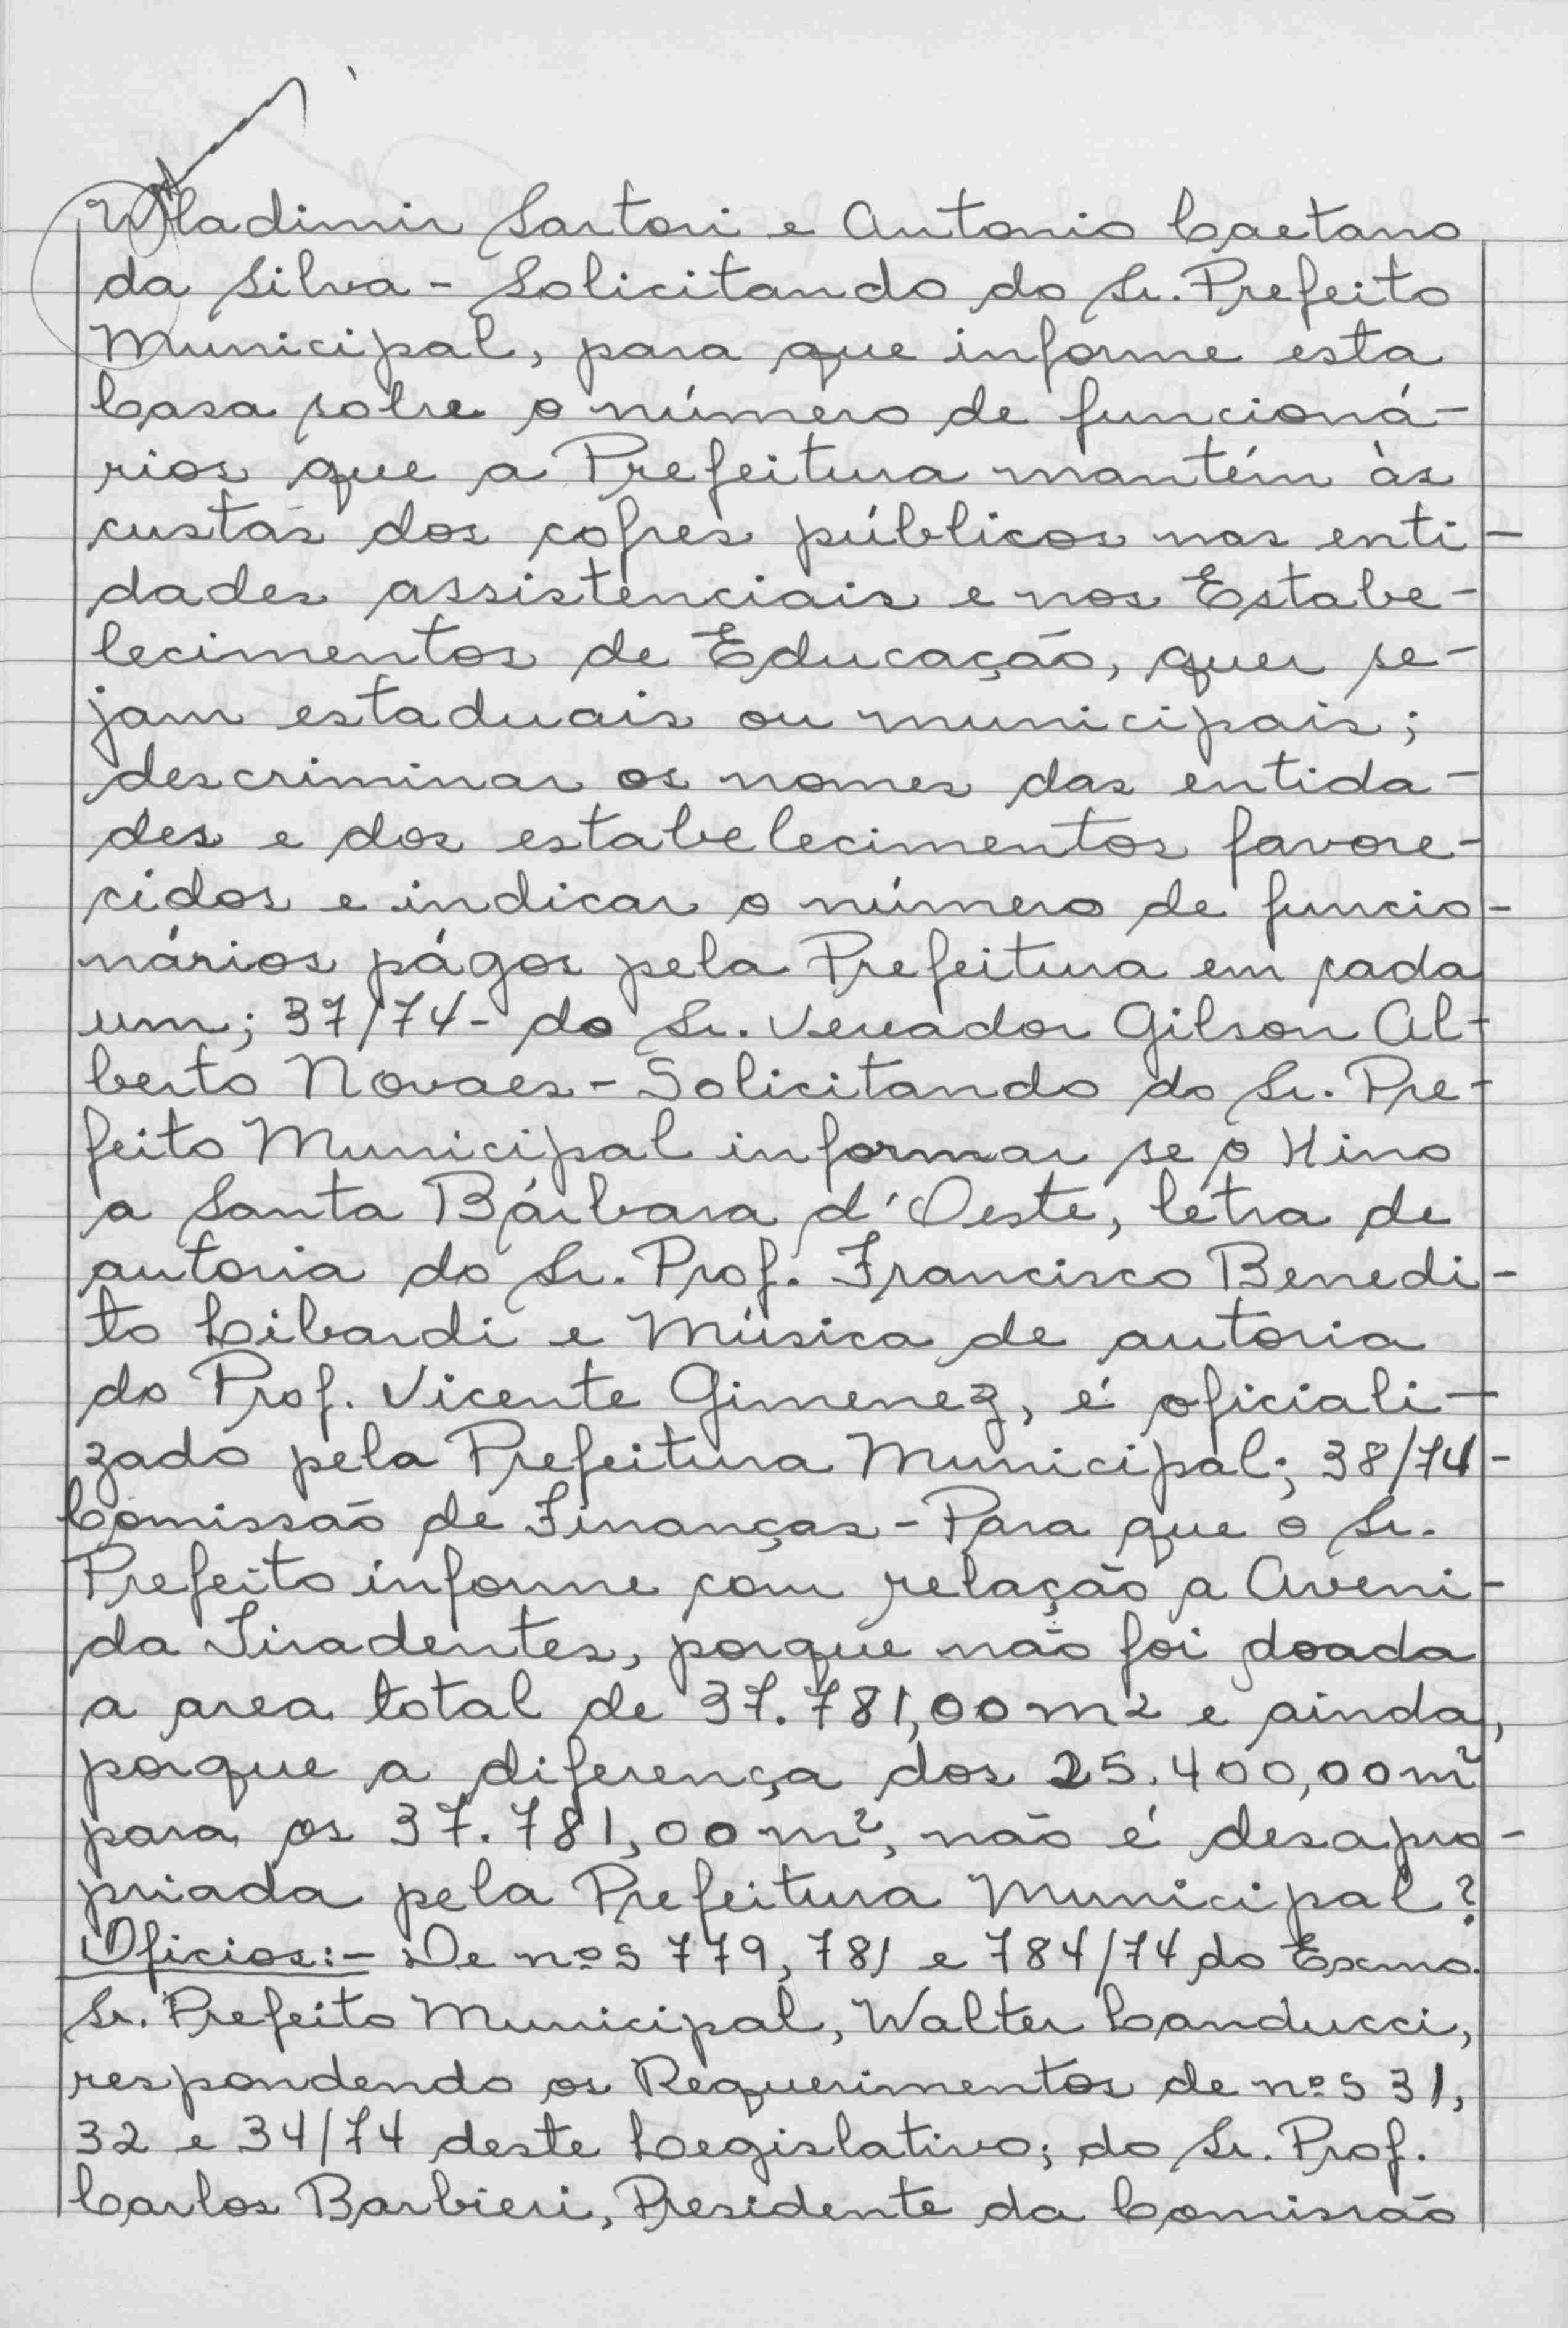 Wladimir Sartori e Antonio Caetano
da Silva - Solicitando do Sr. Prefeito
Municipal, para que informe esta
Casa sobre o número de funcioná-
rios que a Prefeitura mantém às
custas dos cofres públicos nas enti-
dades assistenciais e nos Estabe-
lecimentos de Educação, quer se-
jam estaduais ou municipais;
descriminar os nomes das entida-
des e dos estabelecimentos favore-
cidos e indicar o número de funcio-
nários págos pela Prefeitura em cada
um; 37/74 - do Sr. Vereador Gilson Al-
berto Novaes - Solicitando do Sr. Pre-
feito Municipal informar se o Hino
a Santa Bárbara d'Oeste, letra de
autoria do Sr. Prof. Francisco Benedi-
to Libardi e Música de autoria
do Prof. Vicente Gimenez, é oficiali-
zado pela Prefeitura Municipal; 38/74 -
Comissão de Finanças - Para que o Sr.
Prefeito informe com relação a Aveni-
da Tiradentes, porque não foi doada
a area total de 37.781,00 m2 e ainda,
porque a diferença dos 25.400,00 m²
para os 37.781,00 m², não é desapro-
priada pela Prefeitura Municipal?
Oficios:- De nºs 779, 781 e 784/74 do Exmo.
Sr. Prefeito Municipal, Walter Landucci,
respondendo os Requerimentos de nºs 31,
32 e 34/74 deste Legislativo; do Sr. Prof.
Carlos Barbieri, Presidente da Comissão